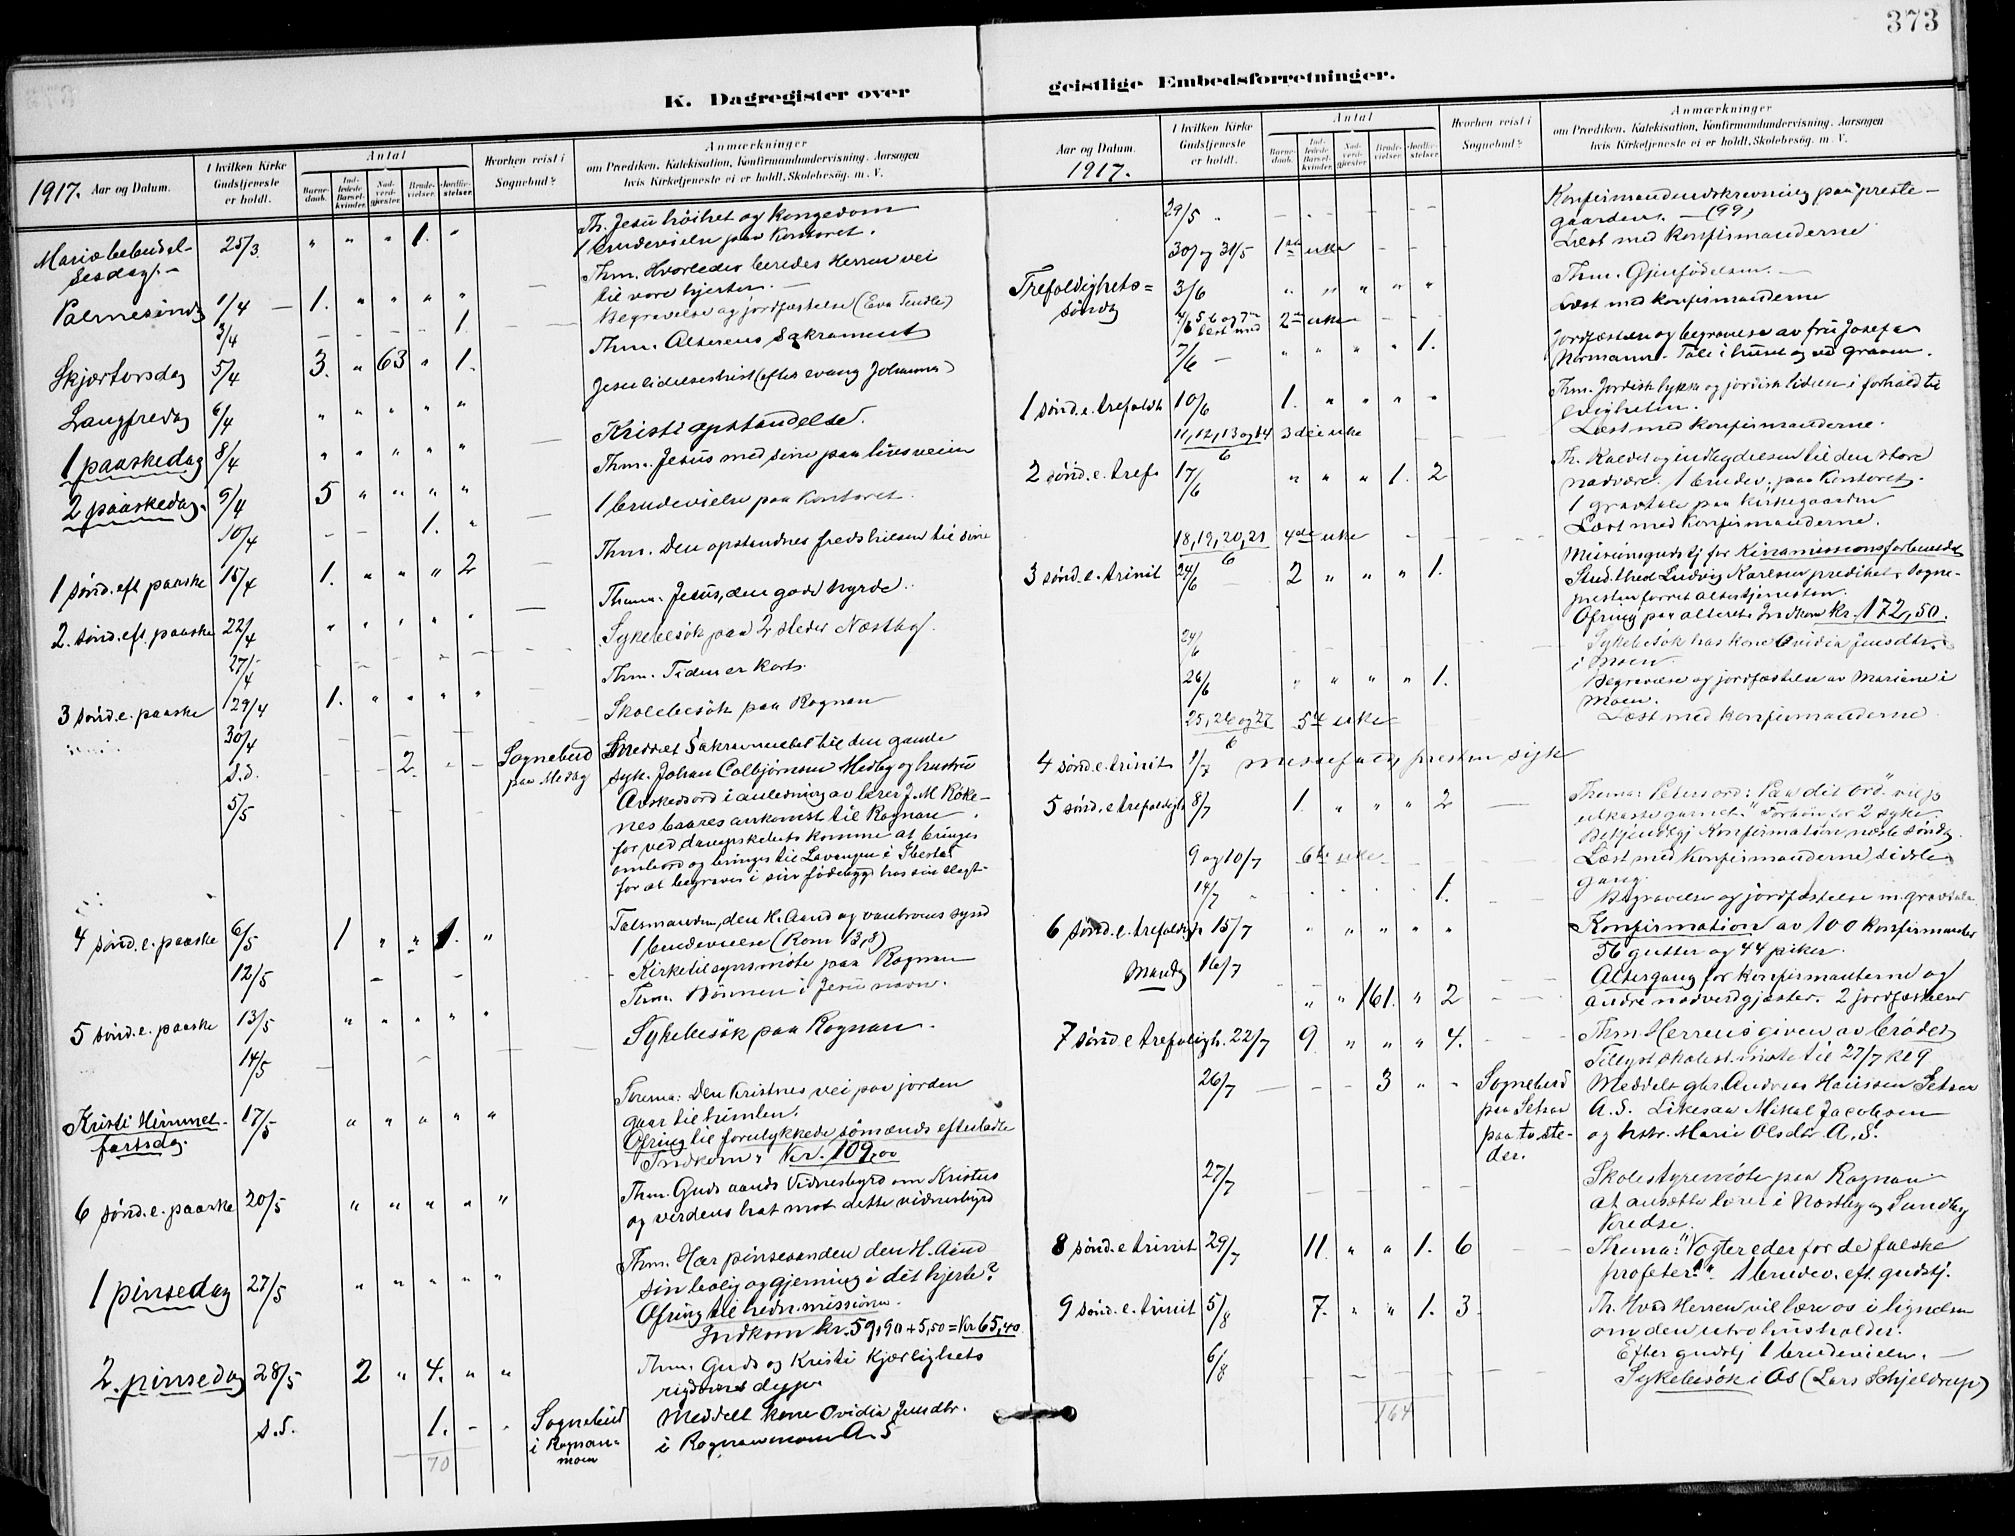 373
K. Dagregister over geistlige Embedsforretninger.
1917. Aar og Datum.
I hvilken Kirke Gudstjeneste er holdt.
Antal
Barne-daab.
Ind-ledede Barsel-kvinder.
Nad-verd-gjester.
Brude-vielser.
Jordfæ-stelser.
Hvorhen reist i Sognebud?
Anmærkninger
om Prædiken, Katekisation, Konfirmandundervisning, Aarsagen
hvis Kirketjeneste ei er holdt, Skolebesøg. m. V.
Mariæ bebudel-sesdag. - 25/3 " " " 1. " Th. Jesu høihet og kongedom
1 brudevielse paa Kontoret.
Palmesønd 1/4 - 1. " " " " Thm. Hvorledes beredes Herren vei
til vore hjerter. -
3/4 - - - - 1. Begravelse og jordfæstelse (Eva Tendle)
Skjærtorsdag 5/4 3. " 63 " 1. Thm. Alterens Sakrament
Langfredag 6/4 " " " " " Jesu lidelseshist (efter evang Johannes)
1 paaskedag 8/4 " " " " " Kristi opstandelse.
2 paaskedag. 9/4 5 " " " " Thm. Jesus med sine paa livsveien
10/4 - - 1. " 1 brudevielse paa Kontoret.
1 sønd. eft paaske 15/4 1. " " " 2 Thm. Den opstandnes fredshilsen til sine
2. sønd. eft. paaske 22/4 " " " " " Thema: Jesus, den gode hyrde.
27/4 - - - - - Sykebesøk paa 2 steder Næstby.
3 sønd. e. paaske 29/4 1. " " " " Thm. Tiden er kort.
30/4 Skolebesøk paa Rognan
s.d. - - 2. - - Sognebud paa Medby Meddelt Sakramentet til den gamle
syk. Johan Colbjørnsen Medby og hustru
5/5 - - Avskedsord i anledning av lærer J. M. Røke-
nes baares ankomst til Rognan
for ved dampskibets komme at bringes
ombord og bringes til Lavangen i Ibestad
for at begraves i sin fødebygd hos sin slegt-
4 sønd. e. paaske 6/5 1 " " 1. " Talsmanden, den H. Aand og vantroens synd
1 brudevielse (Rom 13,8)
12/5 - - - Kirketilsynsmøte paa Rognan
5 sønd. e. paaske 13/5 " " " " " Thema. Bønnen i Jesu navn.
14/5 - - - Sykebesøk paa Rognan.
Kristi Himmel-fartsdag. 17/5 " " " " " Thema: Den kristnes vei paa jorden
gaar til himlen.
Ofring til forulykkede sømænds efterladte
Indkom: Kr. 109,00
6 sønd. e. paaske 20/5 " " " " " Thm. Guds aands Vidnesbyrd om Kristus
og verdens hat mot dette vidnesbyrd
1 pinsedag 27/5 " " " " " Thm. Har pinseaanden den H. Aand
sin bolig og gjerning i dit hjerte?
Ofring til hedn. missionen.
Indkom kr. 59,90 + 5,50 = Kr 65,40
2. pinsedag 28/5 2 " 4. " " Thm. Guds og Kristi Kjærlighets
rigdoms dype
s.d. 1. - - Sognebud i Rognan-moen Meddelt Kone Ovidia Jensdtr.
i Rognanmoen A.S
70
Aar og Datum.
1917.
I hvilken Kirke Gudstjeneste er holdt.
Antal
Barne-daab.
Ind-ledede Barsel-kvinder.
Nad-verd-gjester.
Brude-vielser.
Jordfæ-stelser.
Hvorhen reist i Sognebud?
Anmærkninger
om Prædiken, Katekisation, Konfirmandundervisning, Aarsagen
hvis Kirketjeneste ei er holdt, Skolebesøg. m. V.
29/5 " - - - - - Konfirmandindskrivning paa preste-
gaarden. - (99)
30 og 31/5 1ste uke - - Læst med Konfirmanderne
Trefoldighets=søndag 3/6 " " " " " Thm. Gjenfødelsen. -
4/6 5 6 og 7de læst med 2den uke - - Læst med konfirmanderne
7/6 - " " " " 1. Jordfæstelse og begravelse av fru Josefa
Normann - Tale i huset og ved graven.
1 sønd. e. trefoldh 10/6 1. " " " " Thm. Jordisk lykke og jordisk liden i forhold til
Evigheten.
11, 12, 13 og 14/6 3die uke - - Læst med Konfirmanderne.
2 sønd. e. tref. 17/6 " " " 1. 2 Th. Kaldet og indbydelsen til den store
nadvere. 1 brudev. paa Kontoret.
1 gravtale paa Kirkegaarden
18, 19, 20, 21/6 4de uke - - Læst med Konfirmanderne.
3 sønd. e. trinit 24/6 - 2 " " " 1. Missionsgudstj for Kinamissionsforbundet
Stud. theol Ludvig Karlsen prediket, Sogne-
presten forret altertjenesten.
Ofring paa alteret. Indkom kr. 172,50.
24/6 - - Sykebesøk hos kone Ovidia Jensdtr.
i Moen
26/6 " " " " 1. Begravelse og jordfæstelse av Mariane i
Moen.
25, 26 og 27/6 5te uke - - Læst med Konfirmanderne
4 sønd. e. trinit 1/7 Messefald, presten syk
5 sønd. e trefoldigh 8/7 1. " " " 2 - Thema: Peters ord: Paa dit ord vil jeg
utkaste garnet." Forbøn for 2 syke.
Bekjendtgj Konfirmation næste søndag.
9 og 10/7 6te uke - - Læst med Konfirmanderne sidste
gang.
14/7 " " " " 1. - Begravelse og jordfæstelse m. gravtale
6 sønd. e. trefoldigh 15/7 " " " " " Konfirmation av 100 konfirmander
56 gutter og 44 piker.
Mandag 16/7 " " 161. " 2 - - Altergang for konfirmanterne og
andre nadverdgjæster. 2 jordfæstelser
7 sønd. e trefoldigh. 22/7 9. " " " 4. - - Thm Herrens given av brødet
Tillyst skolest. møte til 27/7 kl 9
26/7 - - - 3 " - Sognebud paa Setsaa paa to ste-der. Meddelt gbr. Andreas Hanssen Setsaa
A.S. Likesaa Mikal Jacobsen
og hstr. Marie Olsdtr. A.S.
27/7 - - - - Skolestyremøte paa Rognan
at ansætte lærer i Nestby og Sundby
Kredse.
8 sønd. e trinit 29/7 11. " " 1. 6 - - Thema: "Vogter eder for de falske
profeter"! 1 brudev. eft. gudstj.
9 sønd. e. trinit 5/8 7. " " 1. 3. Th. Hvad Herren vil lære os i lignelsen
om den utro husholder.
Efter gudstj 1 brudevielse. -
6/8 - - - - Sykebesøk i Os (Lars Schjeldrup)
164